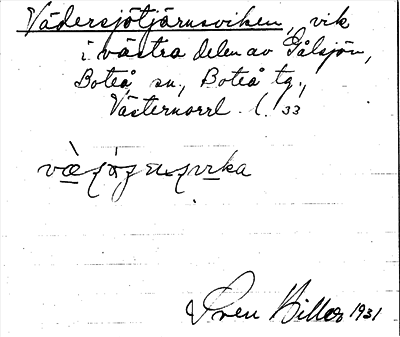 Vädersjötjärnsviken, vik
i västra delen av Gålsjön,
Boteå sn., Boteå tg.,
Västernorrl. l. 33
Sven Hiller 1931